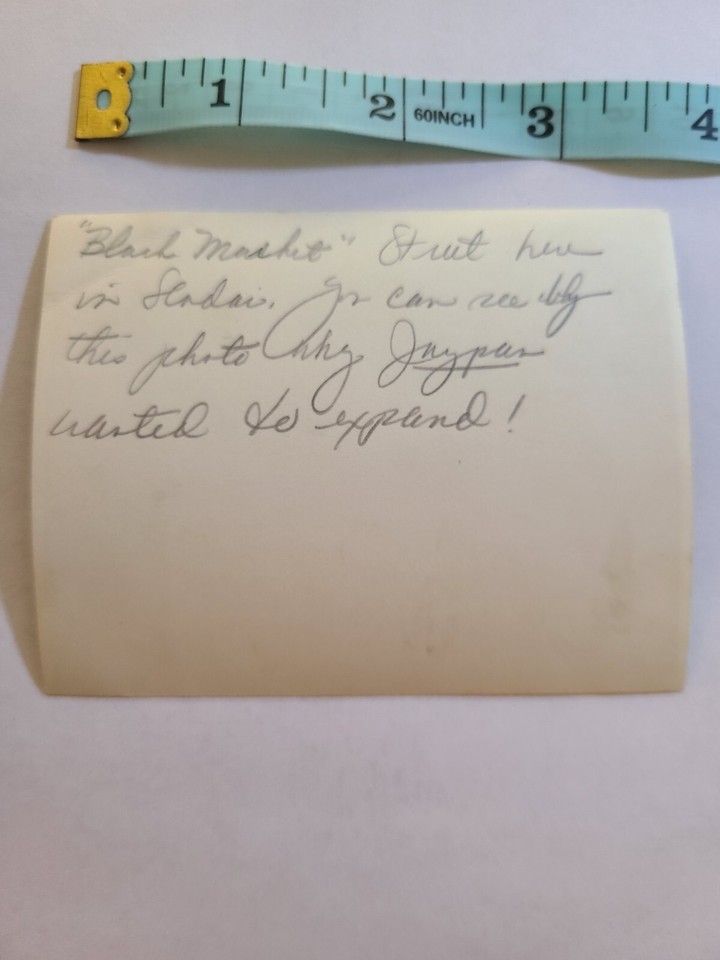 1 2 60INCH 3 4
"Black Market" Street here
in Sendai. You can see why
this photo why Jaypan
wanted to expand!